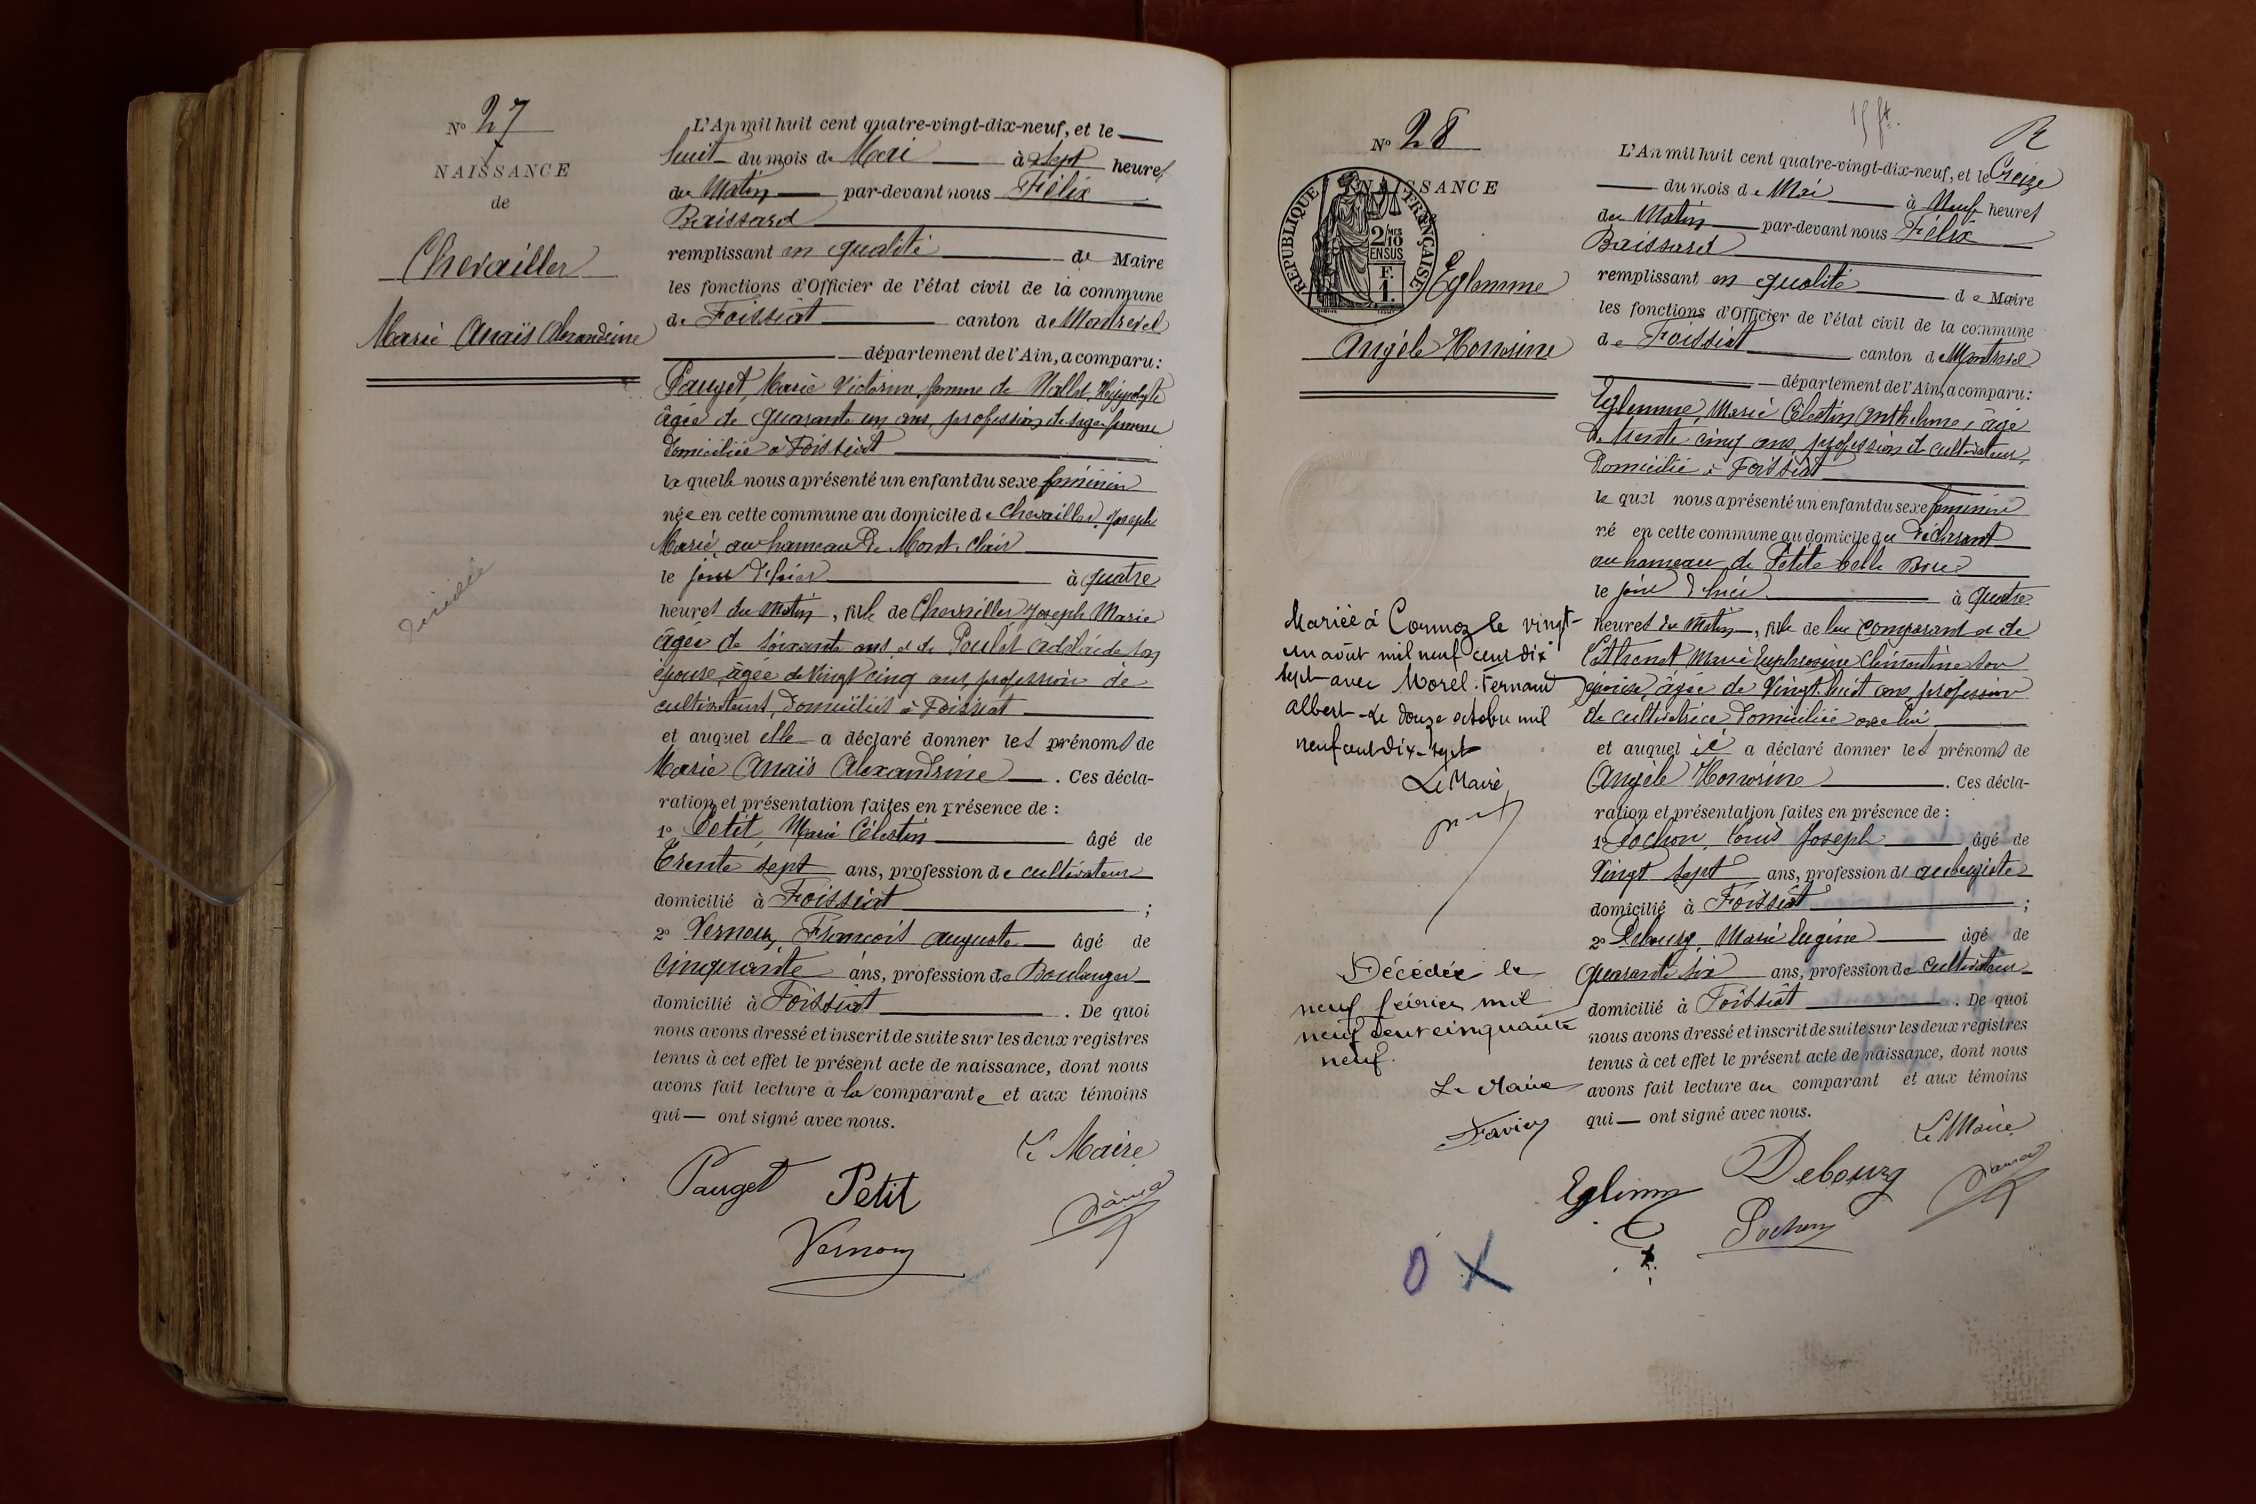 N° 27
NAISSANCE
de
Chevailler
Marie Anaïs Alexandrine
décédée
L'An mil huit cent quatre-vingt-dix-neuf, et le
huit du mois de Mai à Sept heures
du Matin par-devant nous Félix
Baissard
remplissant en qualité de Maire
les fonctions d'Officier de l'état civil de la commune
de Foissiat canton de Montrevel
département de l'Ain, a comparu:
Pauget, Marie Victorine femme de Mallet, Hippolyte
âgée de quarante un ans, profession de sage-femme
domiciliée à Foissiat
la quelle nous a présenté un enfant du sexe féminin
née en cette commune au domicile de Chevailler, Joseph
Marie, au hameau de Mont-clair
le jour d'hier à quatre
heures du matin, fille de Chevailler Joseph Marie
âgée de soixante ans et de Poulet Adélaïde son
épouse, âgée de vingt cinq ans, profession de
cultivateurs, domiciliés à Foissiat
et auquel elle a déclaré donner les prénoms de
Marie Anaïs Alexandrine. Ces décla-
ration et présentation faites en présence de :
1° Petit, Marie Célestin âgé de
Trente sept ans, profession de cultivateur
domicilié à Foissiat ;
2° Vernoux, François Auguste âgé de
cinquante ans, profession de Boulanger
domicilié à Foissiat. De quoi
nous avons dressé et inscrit de suite sur les deux registres
tenus à cet effet le présent acte de naissance, dont nous
avons fait lecture a la comparante et aux témoins
qui — ont signé avec nous.
Le Maire
Pauget Petit
Vernoux
N° 28
NAISSANCE
RÉPUBLIQUE FRANÇAISE
2/10 MES
EN SUS
F.
1.
Eglemme
Angèle Honorine
Mariée à Cormoz le vingt-
un août mil neuf cent dix
sept avec Morel Fernand
Albert. Le douze octobre mil
neuf cent dix-sept
Le Maire
Décédée le
neuf février mil
neuf cent cinquante
neuf.
Le Maire
Favier
R
L'An mil huit cent quatre-vingt-dix-neuf, et le Treize
du mois de Mai à Neuf heures
du Matin par-devant nous Félix
Baissard
remplissant en qualité de Maire
les fonctions d'Officier de l'état civil de la commune
de Foissiat canton de Montrevel
département de l'Ain, a comparu:
Eglemme, Marie Célestin Anthelme, âgé
de trente cinq ans, profession de cultivateur,
domicilié à Foissiat
le quel nous a présenté un enfant du sexe féminin
né en cette commune au domicile du déclarant
au hameau de Petite belle
le jour d'hier à quatre
heures du matin, fille de lui comparant et de
Marie Euphrosine Clémentine son
épouse, âgée de vingt huit ans, profession
de cultivatrice domiciliée avec lui
et auquel il a déclaré donner les prénoms de
Angèle Honorine. Ces décla-
ration et présentation faites en présence de :
1° Pochon, Louis Joseph âgé de
Vingt sept ans, profession d'aubergiste
domicilié à Foissiat ;
2° Debourg, Marie Eugène âgé de
quarante six ans, profession de cultivateur
domicilié à Foissiat. De quoi
nous avons dressé et inscrit de suite sur les deux registres
tenus à cet effet le présent acte de naissance, dont nous
avons fait lecture au comparant et aux témoins
qui — ont signé avec nous.
Le Maire
Eglemme Debourg
Pochon
O X